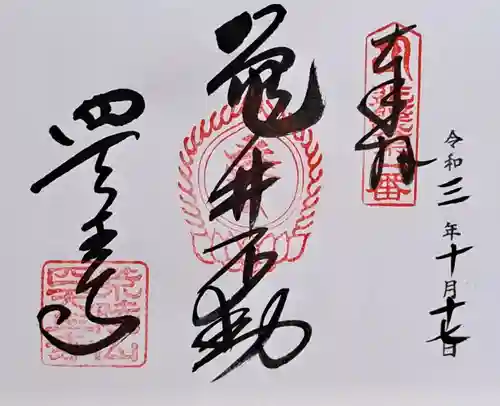 奉拝
令和三年十月十七日
亀井不動
四天王寺